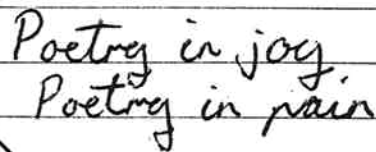 Poetry in joy
Poetry in pain